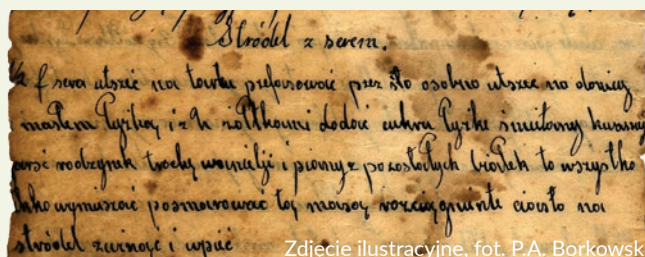 Stródel z serem.
½ f sera utrzeć na tarku przefasować przez sito osobno utrzec na donicy
masłem łyżką i z 2 zółtkami dodać cukru łyżke śmitanny kwasny
garść rodzynek trochę wanielji i piany z pozostałych białek to wszystko
lekko wymieszać posmarować tą masą rozciągniente ciasto na
stródel zwinąć i upiec
Zdjęcie ilustracyjne, fot. P.A. Borkowsk